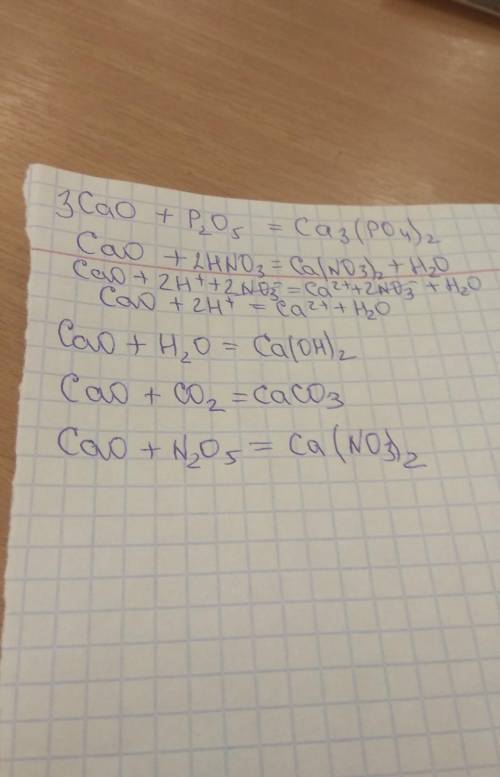 3CaO + P₂O₅ = Ca₃(PO₄)₂
CaO + 2HNO₃ = Ca(NO₃)₂ + H₂O
CaO + 2H⁺ + 2NO₃⁻ = Ca²⁺ + 2NO₃⁻ + H₂O
CaO + 2H⁺ = Ca²⁺ + H₂O
CaO + H₂O = Ca(OH)₂
CaO + CO₂ = CaCO₃
CaO + N₂O₅ = Ca(NO₃)₂